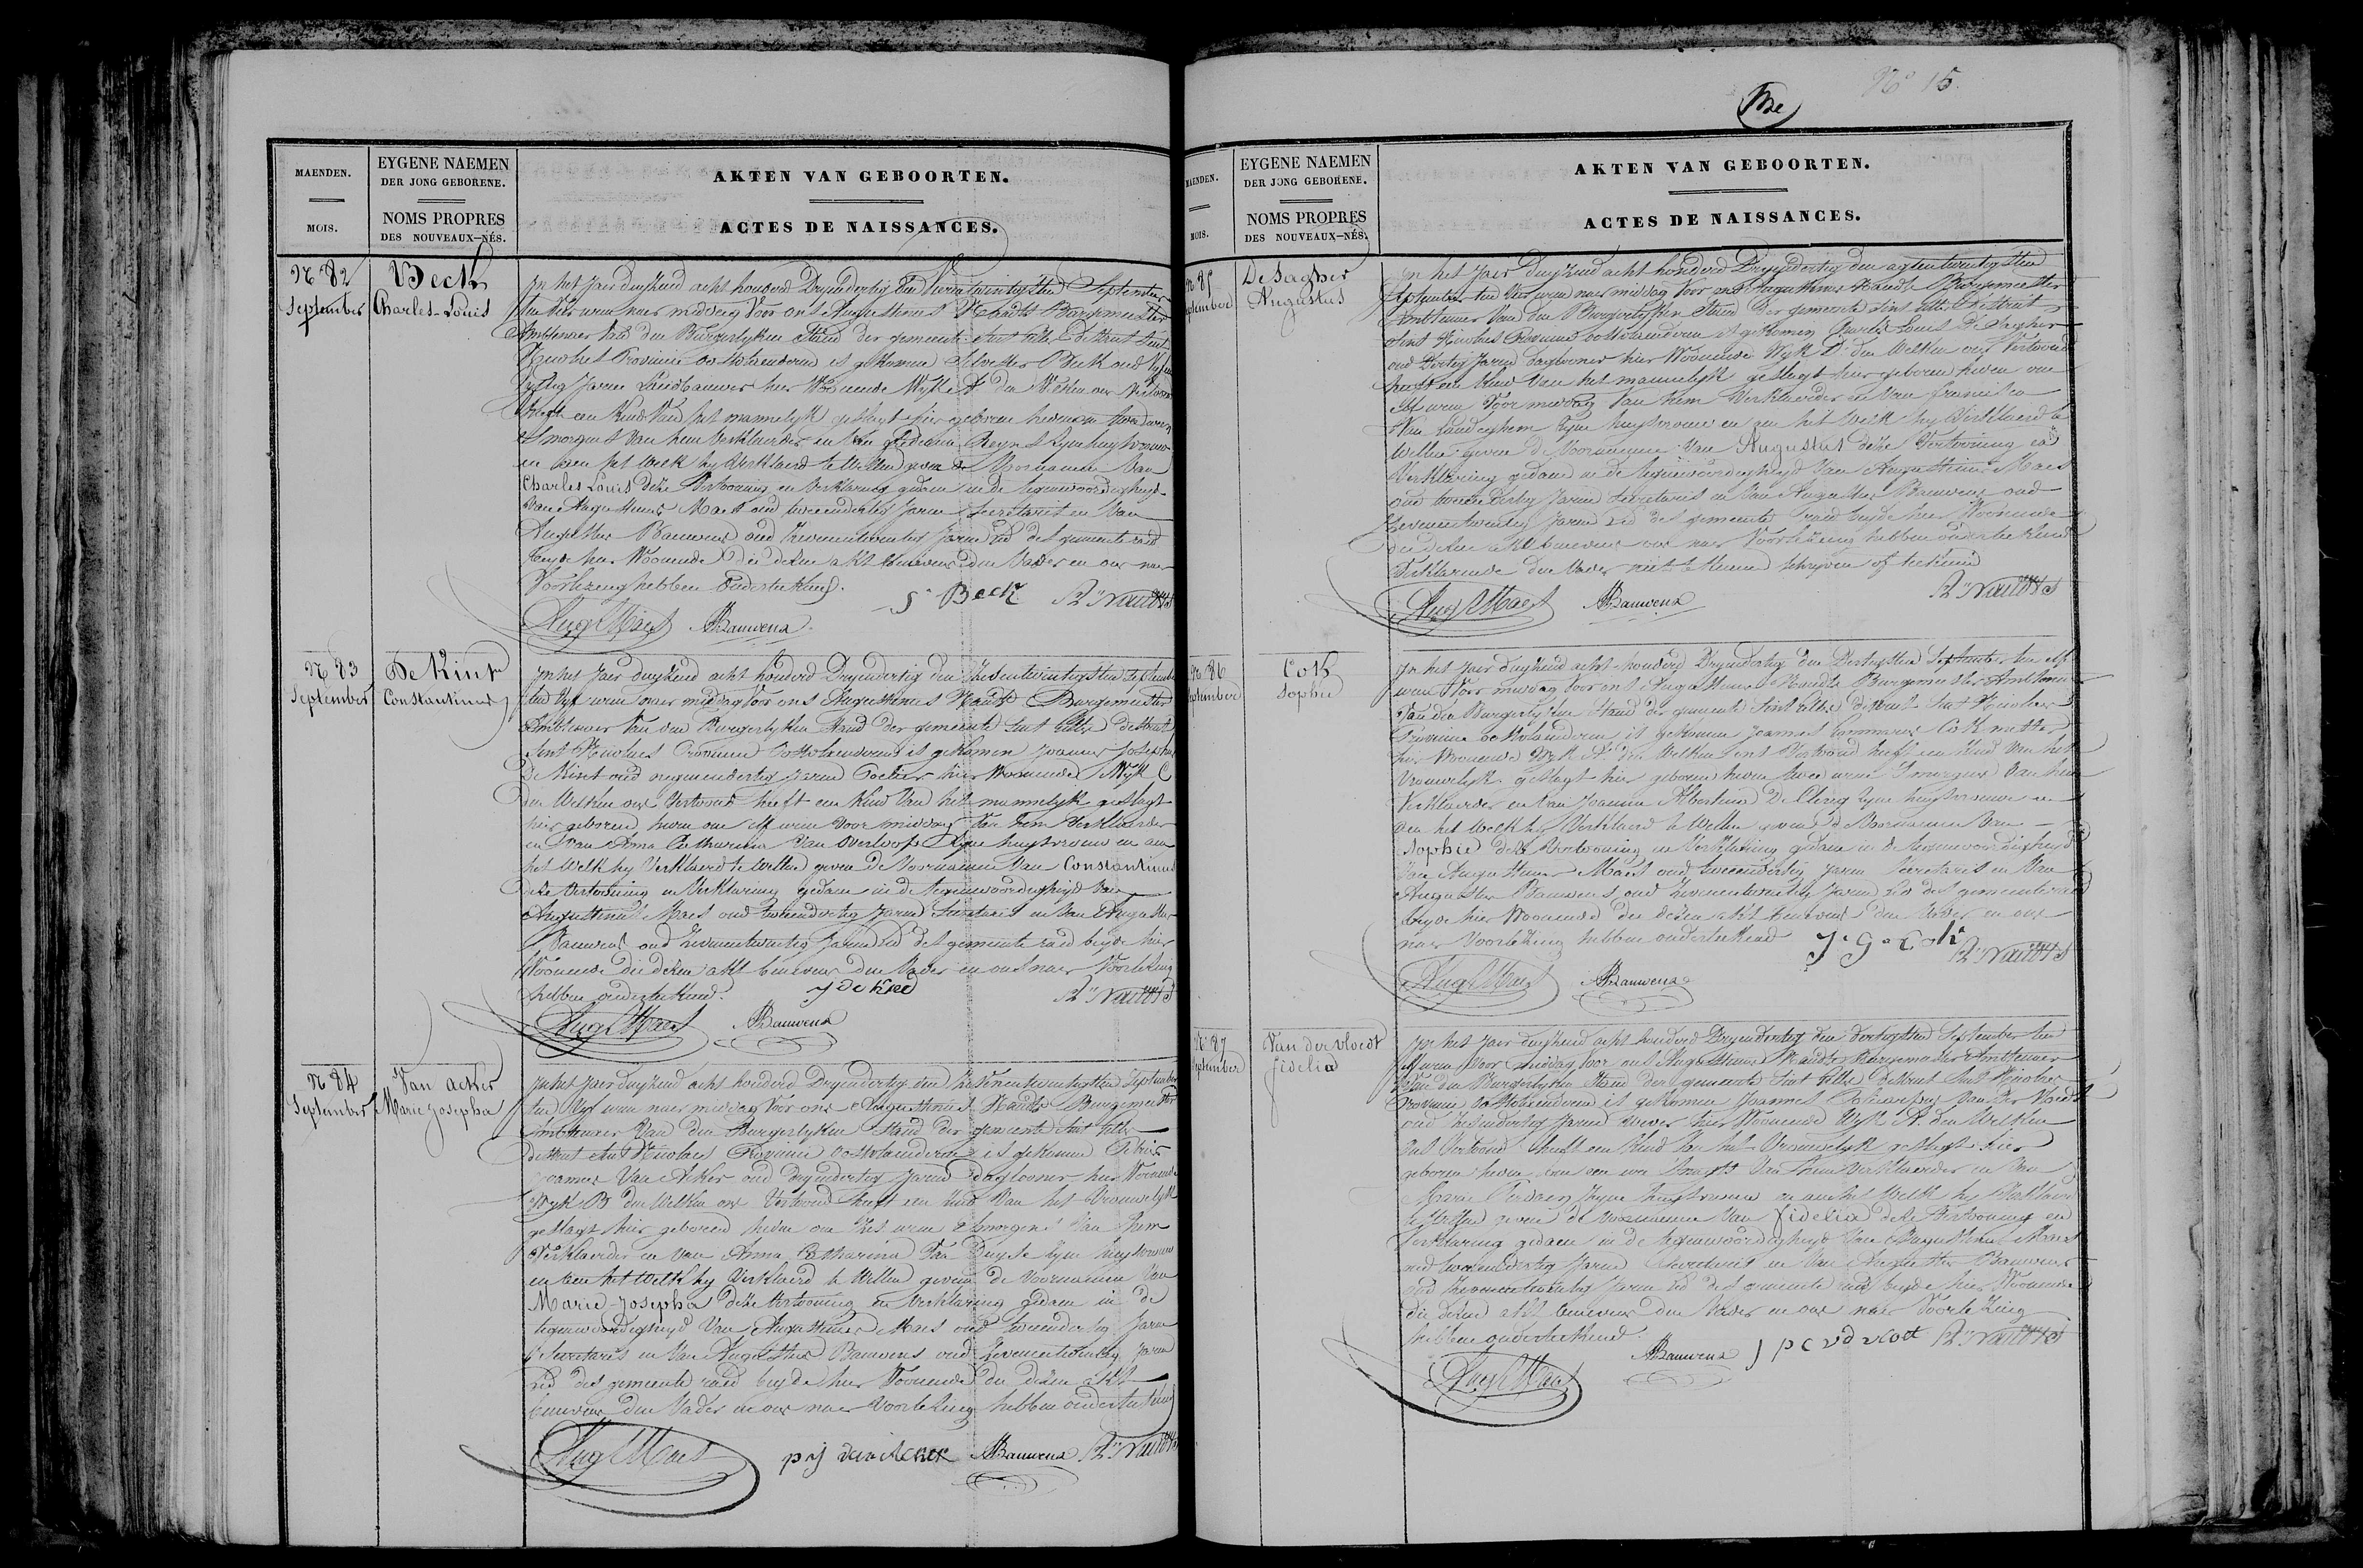 MAENDEN.
MOIS.
EYGENE NAEMEN
DER JONG GEBORENE.
NOMS PROPRES
DES NOUVEAUX-NÉS.
AKTEN VAN GEBOORTEN.
ACTES DE NAISSANCES.
N 82
September
Beck
Charles-Louis
In het Jaer duyzend acht honderd Dryendertig den September
ten uren naer middag voor ons Augustinus Burgemeester
Ambtenaer van den Burgerlyken Stand der gemeente Sint Gillis district Sint
Nicolaes Provincie Oostvlaenderen is gekomen Beck oud
Jaren Landbouwer hier Woonende Wyk den Welken ons
heeft een Kind van het mannelyk geslagt hier geboren
Smorgens van hem Verklaerder en van zyne huysvrouw
en aen het welk hy Verklaerd te Willen geven de Voornamen van
Charles Louis deze Vertooning en Verklaring gedaen in de tegenwoordigheyd
van Augustinus Maes oud tweeendertig Jaren Secretaris en Van
Augustus Bauwens oud Zevenentwintig Jaren Lid des gemeente raed
beyde hier Woonende die dezen akt benevens den Vader en ons naer
Voorlezing hebben onderteekend.
S Beck
Aug Maes ABauwens
N 83
September
De Kint
Constantinus
In het Jaer duyzend acht honderd Dryendertig den September
ten Vyf uren naer middag voor ons Augustinus Burgemeester
Ambtenaer van den Burgerlyken Stand der gemeente Sint Gillis district
Sint Nicolaes Provincie Oostvlaenderen is gekomen Joannes Josephus
De Kint oud negenendertig Jaren hier Woonende Wyk C
den Welken ons Vertoond heeft een Kind Van het mannelyk geslagt
hier geboren heden om elf uren voor middag van hem Verklaerder
en van Anna Catharina Van Overloop zyne huysvrouw en aen
het Welk hy Verklaerd te Willen geven de Voornamen Van Constantinus
deze Vertooning en Verklaring gedaen in de tegenwoordigheyd van
Augustinus Maes oud tweeendertig Jaren Secretaris en van Augustus
Bauwens oud Zevenentwintig Jaren Lid des gemeente raed beyde hier
Woonende die dezen akt benevens den Vader en ons naer Voorlezing
hebben onderteekend.
Aug Maes ABauwens
N 84
September
Van acker
Marie Josepha
In het Jaer duyzend acht honderd Dryendertig den Zevenentwintigsten September
ten Vyf uren naer middag Voor ons Augustinus Burgemeester
Ambtenaer Van den Burgerlyken Stand der gemeente Sint Gillis
district Sint Nicolaes Provincie Oostvlaenderen is gekomen Petrus
Joannes Van Acker oud dryendertig Jaren daglooner hier Woonende
Wyk B den Welken ons Vertoond heeft een kind Van het Vrouwelyk
geslagt hier geboren heden om zes uren Smorgens van hem
Verklaerder en van Anna Catharina Van zyne huysvrouw
en aen het Welk hy Verklaerd te Willen geven de Voornamen Van
Marie-Josepha deze Vertooning en Verklaring gedaen in de
tegenwoordigheyd Van Augustinus Maes oud tweeendertig Jaren
Secretaris en Van Augustus Bauwens oud Zevenentwintig Jaren
Lid des gemeente raed beyde hier Woonende die dezen akt
benevens den Vader en ons naer Voorlezing hebben onderteekend
Aug Maes p j van acker ABauwens
N° 15
MAENDEN.
MOIS.
EYGENE NAEMEN
DER JONG GEBORENE.
NOMS PROPRES
DES NOUVEAUX-NÉS.
AKTEN VAN GEBOORTEN.
ACTES DE NAISSANCES.
N 85
September
De Sagher
Augustus
In het Jaer duyzend acht honderd Dryendertig den
September ten uren naer middag Voor ons Augustinus Burgemeester
Ambtenaer Van den Burgerlyken Stand der gemeente Sint Gillis district
Sint Nicolaes Provincie Oostvlaenderen is gekomen Charles Louis De Sagher
oud Dertig Jaren daglooner hier Woonende Wyk D den Welken ons Vertoond
heeft een kind Van het mannelyk geslagt hier geboren heden om
elf uren Voormiddag Van hem Verklaerder en Van Francisca
Van Landeghem zyne huysvrouw en aen het Welk hy Verklaerd te
Willen geven de Voornamen Van Augustus deze Vertooning en
Verklaring gedaen in de tegenwoordigheyd Van Augustinus Maes
oud tweeendertig Jaren Secretaris en Van Augustus Bauwens oud
Zevenentwintig Jaren Lid des gemeente raed beyde hier Woonende
die dezen akt benevens ons naer Voorlezing hebben onderteekend
Verklarende den Vader niet te kunnen schryven of teekenen
Aug Maes ABauwens
N 86
September
Cok
Sophie
In het Jaer duyzend acht honderd Dryendertig den Dertigsten September ten elf
uren Voor middag Voor ons Augustinus Burgemeester Ambtenaer
Van den Burgerlyken Stand der gemeente Sint Gillis district Sint Nicolaes
Provincie Oostvlaenderen is gekomen Joannes Cok
hier Woonende Wyk A den Welken ons Vertoond heeft een kind van het
Vrouwelyk geslagt hier geboren heden twee uren Smorgens Van hem
Verklaerder en Van Joanna Albertina De Clercq zyne huysvrouw en
aen het Welk hy Verklaerd te Willen geven de Voornamen Van
Sophie deze Vertooning en Verklaring gedaen in de tegenwoordigheyd
Van Augustinus Maes oud tweeendertig Jaren Secretaris en Van
Augustus Bauwens oud Zevenentwintig Jaren Lid des gemeente raed
beyde hier Woonende die dezen akt benevens den Vader en ons
naer Voorlezing hebben onderteekend
J G Cok
Aug Maes ABauwens
N 87
September
Van der vloedt
fidelia
In het Jaer duyzend acht honderd Dryendertig den dertigsten September ten
elf uren Voor middag Voor ons Augustinus Burgemeester Ambtenaer
Van den Burgerlyken Stand der gemeente Sint Gillis district Sint Nicolaes
Provincie Oostvlaenderen is gekomen Joannes Van Der Vloedt
oud Jaren wever hier Woonende Wyk A den Welken
ons Vertoond heeft een Kind Van het Vrouwelyk geslagt hier
geboren heden om een ure Van hem Verklaerder en Van
Maria zyne huysvrouw en aen het Welk hy Verklaerd
te Willen geven de Voornamen Van fidelia deze Vertooning en
Verklaring gedaen in de tegenwoordigheyd Van Augustinus Maes
oud tweeendertig Jaren Secretaris en Van Augustus Bauwens
oud Zevenentwintig Jaren Lid des gemeente raed beyde hier Woonende
die dezen akt benevens den Vader en ons naer Voorlezing
hebben onderteekend.
Aug Maes ABauwens